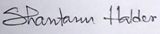 Shantanu Halder